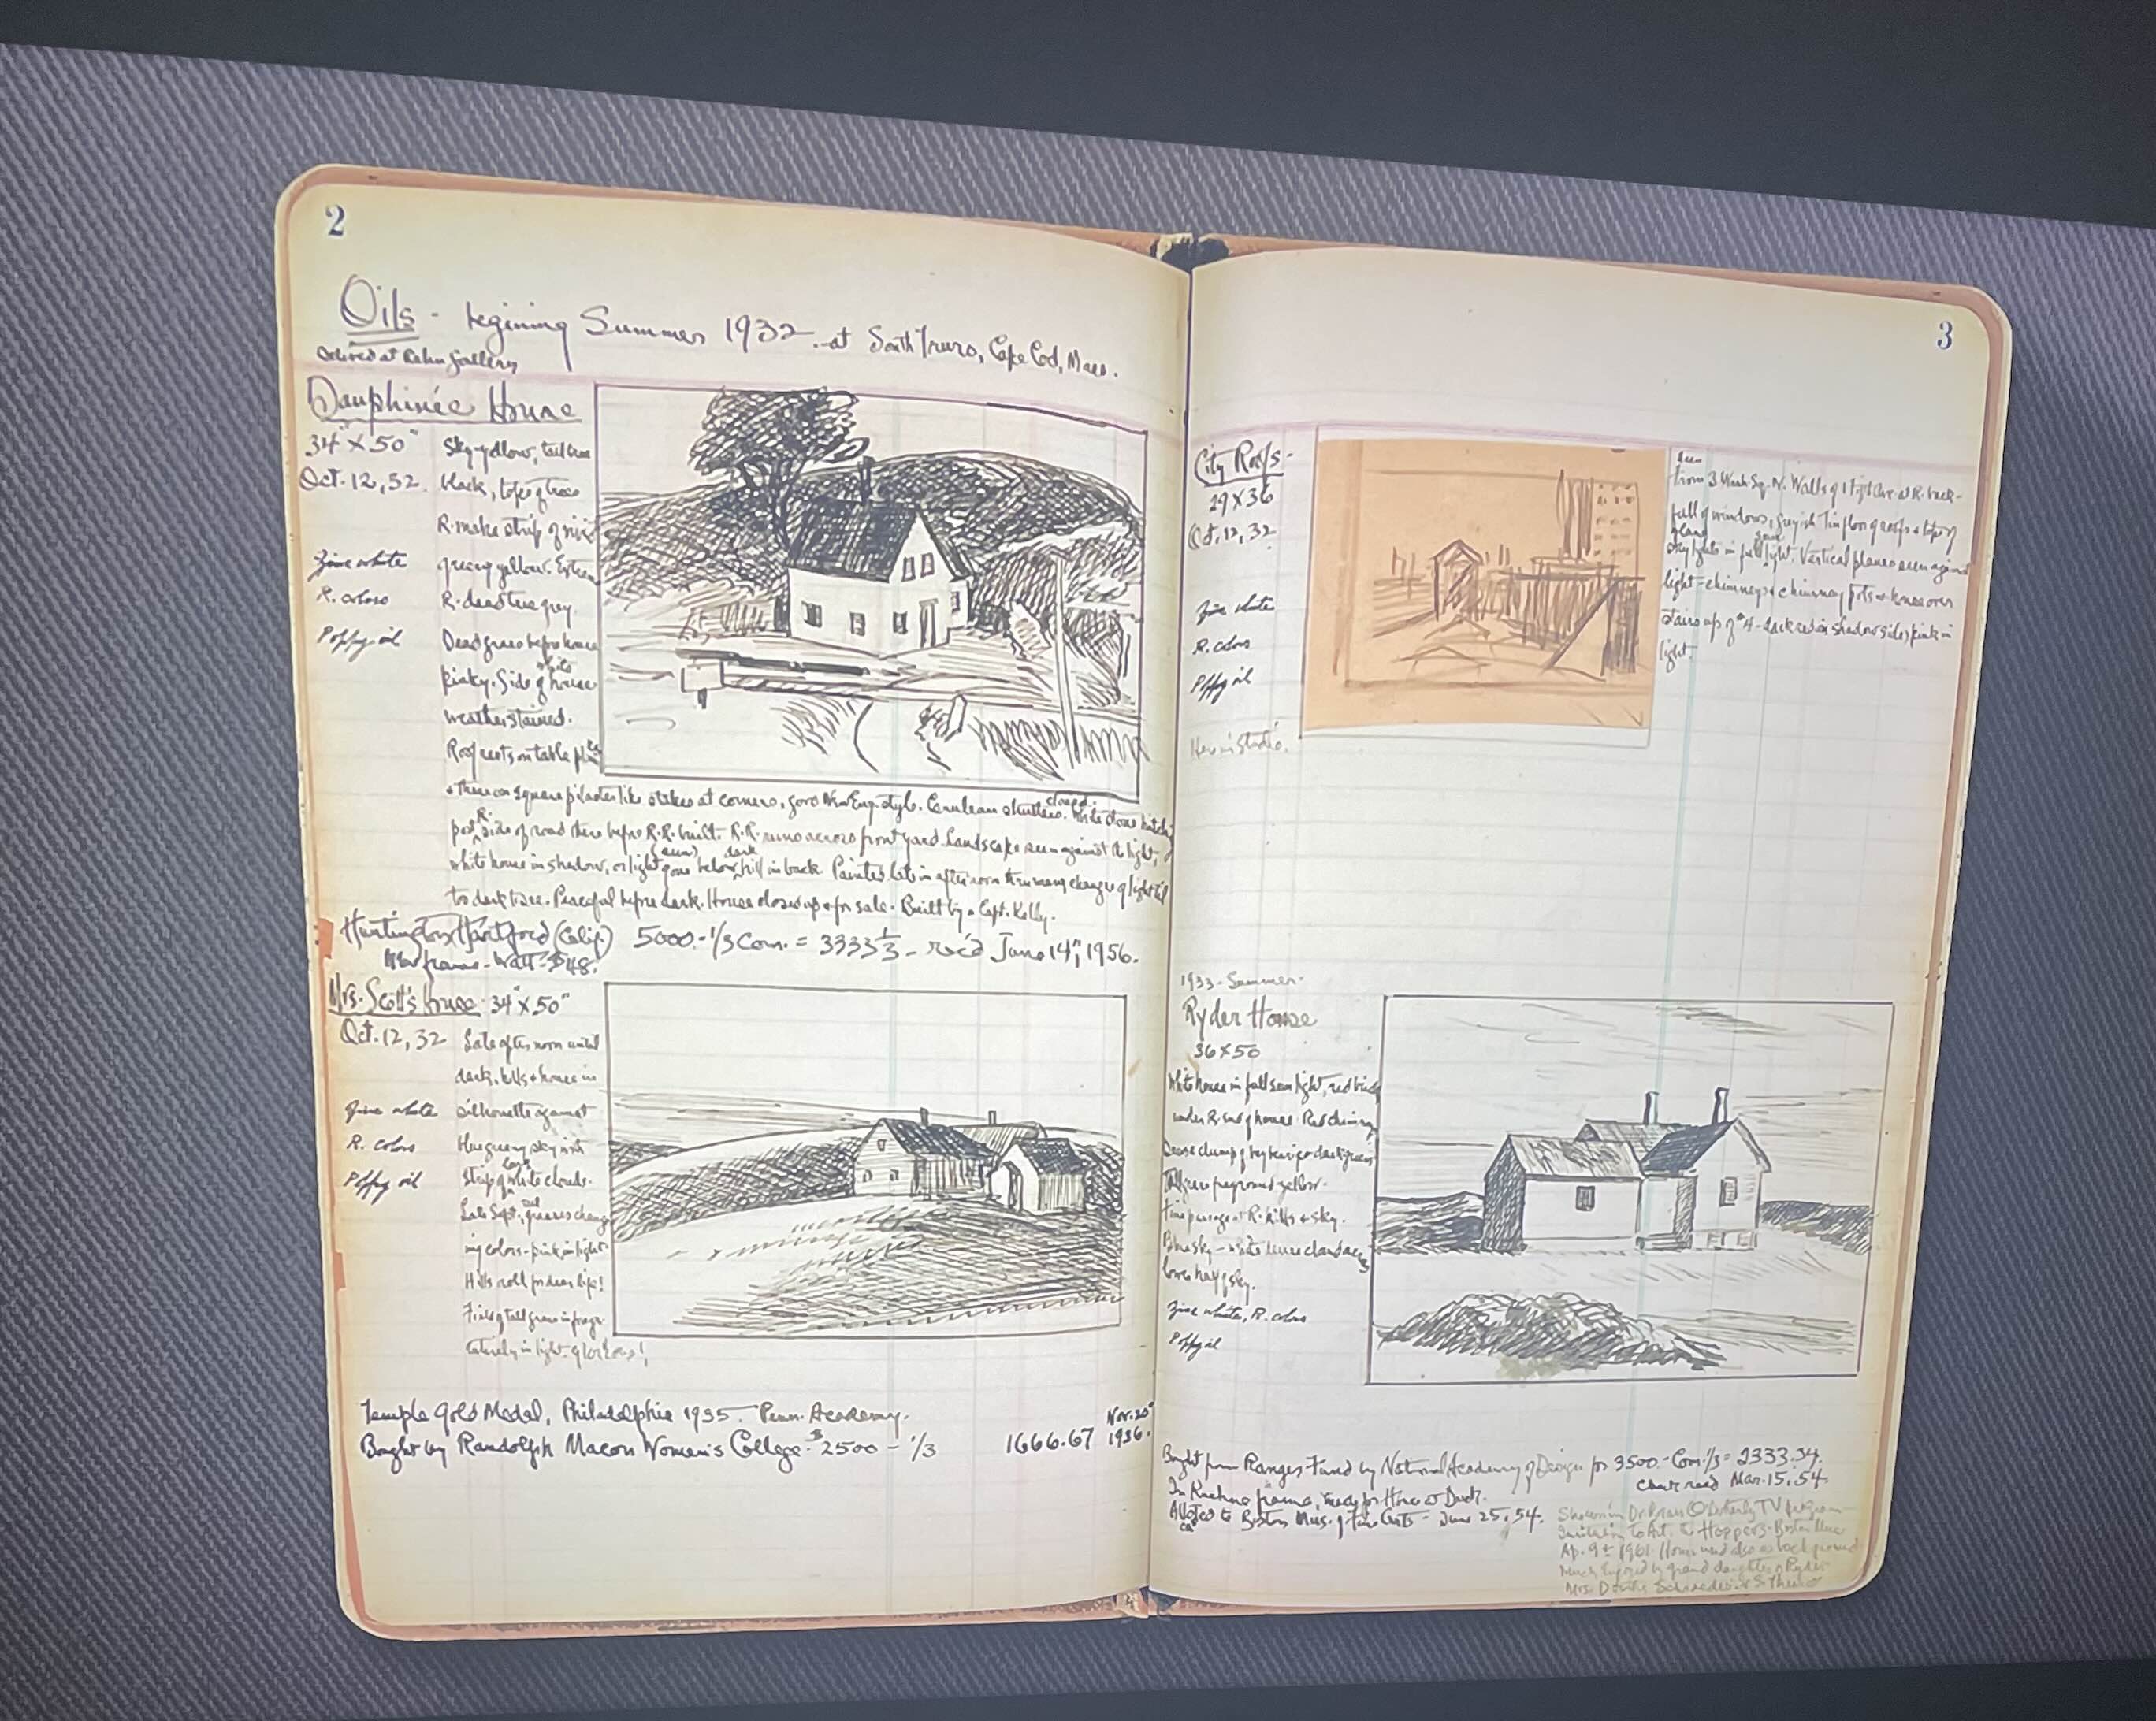 2
Oils - begining Summer 1932 - at South Truro, Cape Cod, Mass.
at Rehn Gallery
Dauphinée House
34" X 50"
Oct. 12, 32
Zinc white
R. colors
Poppy oil
Sky yellow, tall tree
black, tops of trees
R. make strip of
greeny yellow. Extreme
R. dead tree grey.
Dead grass before house
pinky. Side of white house
weather stained.
Roof rests on table
+ these on square pilaster like stakes at corners, good New Eng. style. Cerulean shutters closed. White stone
post R. side of road there before R.R. built. R.R. runs across front yard. Landscape seen against the light,
white house in shadow, or light (sun) gone below dark hill in back. Painted late in afternoon thru many changes of light til
to dark tree. Peaceful before dark. House closed up + for sale. Built by a Capt. Kelly.
Huntington Hartford (Calif.) 5000.- 1/3 Com. = 3333 1/3 - rec'd June 14", 1956.
New frame - Watt - $48.
Mrs. Scott's House 34" X 50"
Oct. 12, 32
Zinc white
R. colors
Poppy oil
Late afternoon until
dark. hills + house in
silhouette against
blue green sky with
strip of long white clouds.
Late Sept., grasses chang-
ing colors - pink in light.
Hills roll for dear life!
Field of tall grass in
in light - glorious!
Temple Gold Medal, Philadelphia 1935. Penn. Academy.
Bought by Randolph Macon Women's College $2500 - 1/3 1666.67 Nov. 20 1936.
3
City Roofs -
29 X 36
Oct. 12, 32
Zinc white
R. colors
Poppy oil
Here in Studio.
from 3 Wash. Sq. N. Walls of 1 Fifth Ave. at R. back -
full of windows, greyish Tin floor of roofs + tops of
skylights in full light. Vertical planes seen against
light - chimneys + chimney pots + house over
stairs up of #4 - dark red in shadow side, pink in
light.
1933 - Summer -
Ryder House
36 X 50
White house in full sun light, red brick
under R. end of house. Red chimney
Loose clump of dark green
yellow.
R. hills + sky.
Blue sky - white
lower half of sky.
Zinc white, R. colors
Poppy oil
Bought from Ranger Fund by National Academy of Design for 3500.- Com. 1/3 = 2333.34.
Check rec'd Mar. 15, 54.
In frame, made for
Allotted to Boston Mus. of Fine Arts - June 25, 54.
Shown in Dr. Brian O'Doherty TV program -
Invitation to Art. The Hoppers - Boston Mus.
Ap. 9th 1961. House used also as background
Much enjoyed by grand daughter Ryder
Mrs.